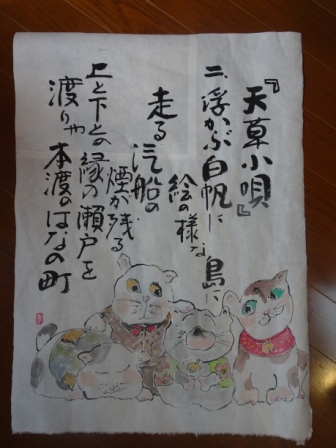 『天草小唄』
二、浮かぶ白帆に島に
絵の様な
走る汽船の
煙が残る
上と下との縁の瀬戸を
渡りゃ本渡のはなの町